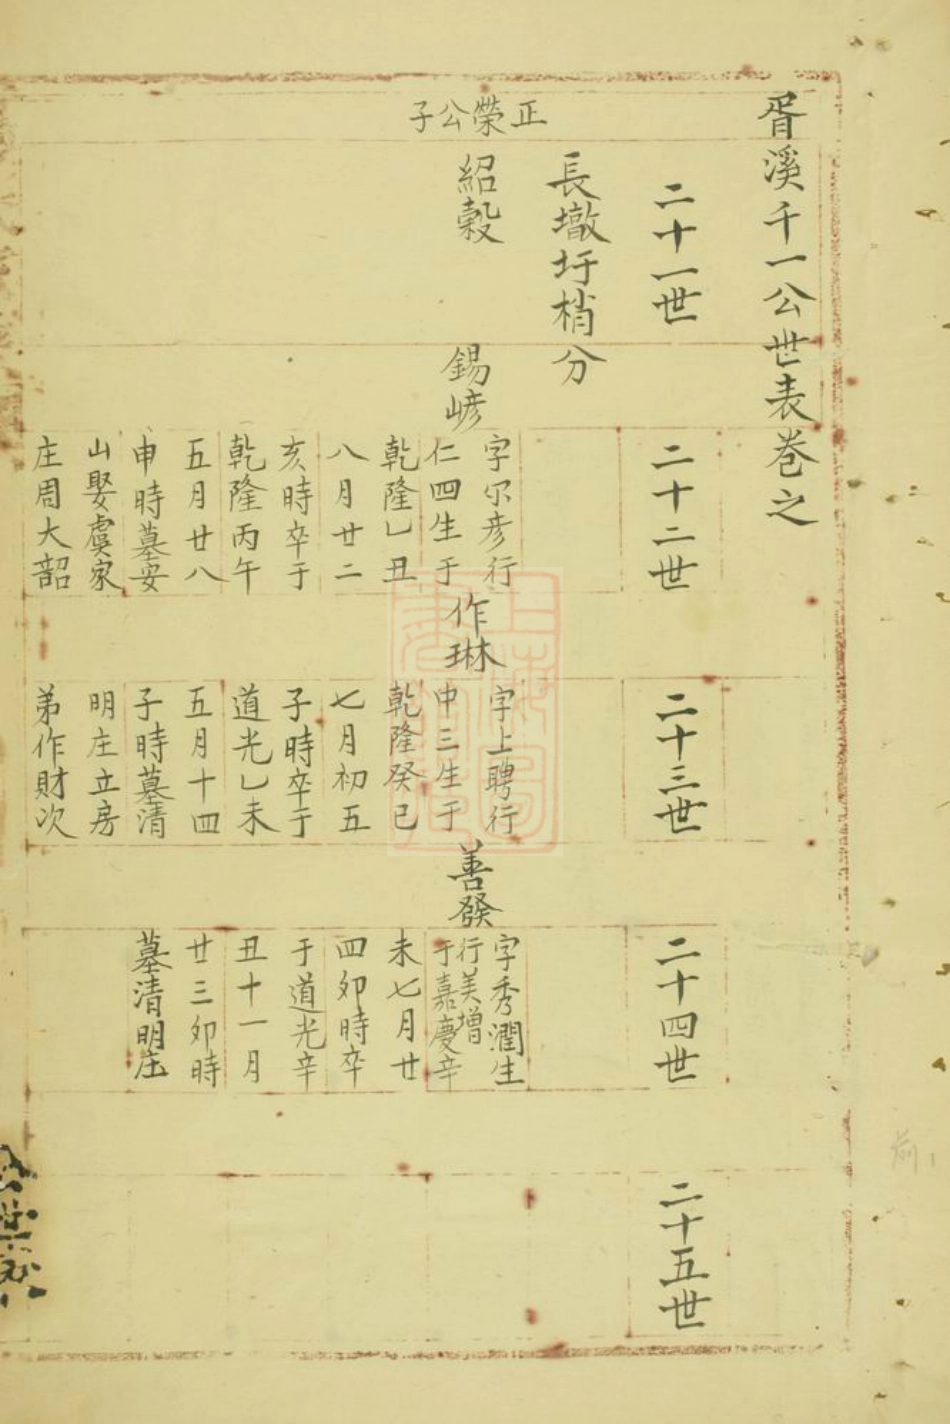 胥溪千一公世表卷之
二十一世
二十二世
二十三世
二十四世
二十五世
長墩圩梢分
正榮公子
紹穀
錫嵃
字尔彦行
仁四生于
乾隆乙丑
八月廿二
亥時卒于
乾隆丙午
五月廿八
申時墓安
山娶虞家
庄周大韶
作琳
字上聘行
中三生于
乾隆癸巳
七月初五
子時卒于
道光乙未
五月十四
子時墓清
明庄立房
弟作財次
善發
字秀潤生
行美增
于嘉慶辛
未七月廿
四卯時卒
于道光辛
丑十一月
廿三卯時
墓清明庄